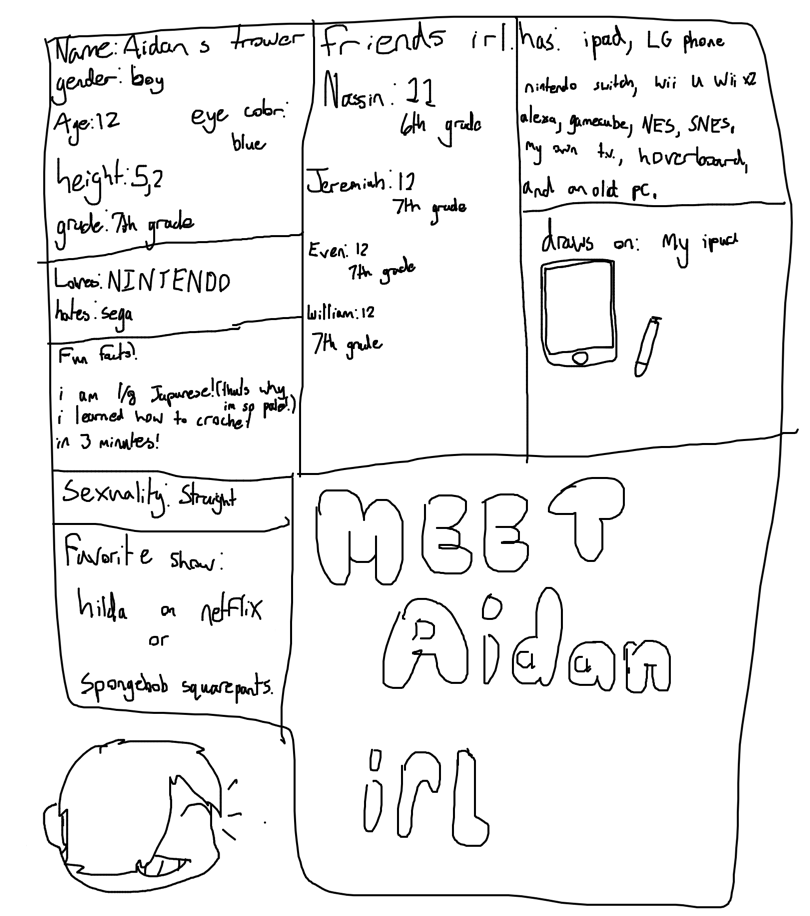 Name: Aidan s trower
gender: boy
Age: 12
eye color:
blue
height: 5,2
grade: 7th grade
Loves: NINTENDO
hates: sega
Fun facts!
i am 1/8 Japanese! (thats why
im so pale!)
i learned how to crochet
in 3 minutes!
Sexuality: Straight
Favorite show:
hilda on netflix
or
Spongebob squarepants.
friends irl.
Nassin: 11
6th grade
Jeremiah: 12
7th grade
Even: 12
7th grade
William: 12
7th grade
has: ipad, LG phone
nintendo switch, Wii U Wii x2
alexa, gamecube, NES, SNES,
my own t.v., hoverboard,
and an old PC.
draws on: My ipad
MEET
Aidan
irl